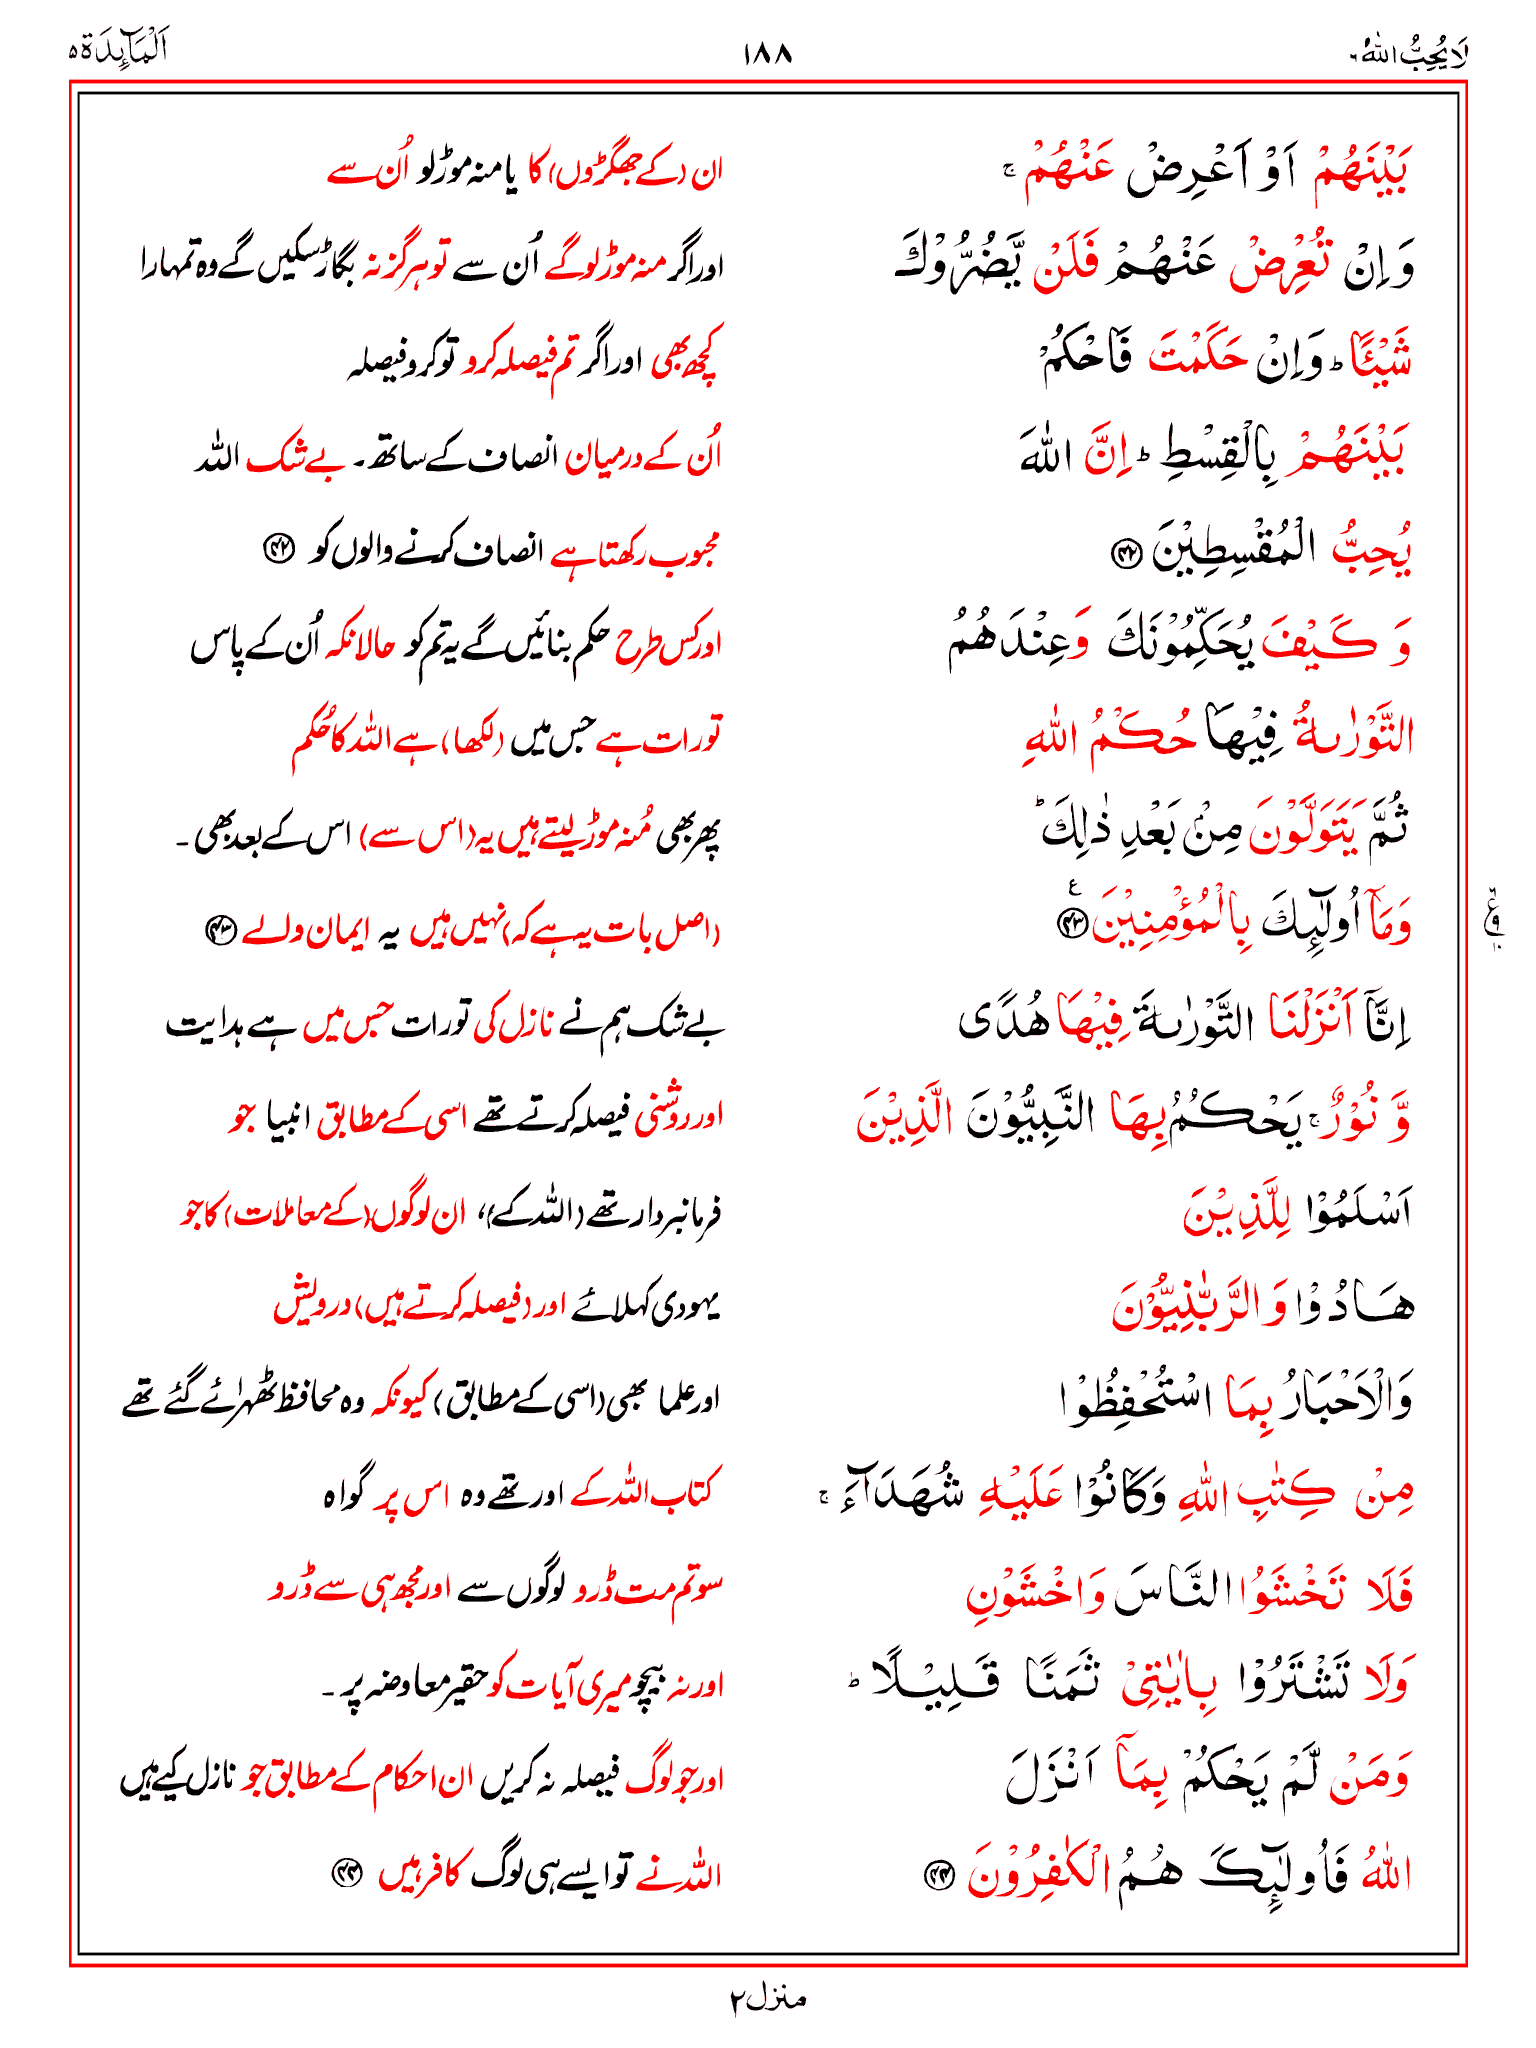 لَا يُحِبُّ اللّٰهُ ٦ ١٨٨ اَلْمَآئِدَة ٥
بَيْنَهُمْ اَوْ اَعْرِضْ عَنْهُمْ ۚ ان (کے جھگڑوں) کا یا منہ موڑ لو اُن سے
وَاِنْ تُعْرِضْ عَنْهُمْ فَلَنْ يَّضُرُّوْكَ اور اگر منہ موڑ لو گے اُن سے تو ہرگز نہ بگاڑ سکیں گے وہ تمہارا
شَيْـًٔا ؕ وَاِنْ حَكَمْتَ فَاحْكُمْ کچھ بھی اور اگر تم فیصلہ کرو تو کرو فیصلہ
بَيْنَهُمْ بِالْقِسْطِ ؕ اِنَّ اللّٰهَ اُن کے درمیان انصاف کے ساتھ۔ بے شک اللہ
يُحِبُّ الْمُقْسِطِيْنَ ﴿۴۲﴾ محبوب رکھتا ہے انصاف کرنے والوں کو ﴿۴۲﴾
وَ كَيْفَ يُحَكِّمُوْنَكَ وَعِنْدَهُمُ اور کس طرح حکم بنائیں گے یہ تم کو حالانکہ اُن کے پاس
التَّوْرٰىةُ فِيْهَا حُكْمُ اللّٰهِ تورات ہے جس میں (لکھا) ہے اللہ کا حُکم
ثُمَّ يَتَوَلَّوْنَ مِنْۢ بَعْدِ ذٰلِكَ ؕ پھر بھی مُنہ موڑ لیتے ہیں یہ (اس سے) اس کے بعد بھی۔
وَمَآ اُولٰٓئِكَ بِالْمُؤْمِنِيْنَ ﴿۴۳﴾ ع (اصل بات یہ ہے کہ) نہیں ہیں یہ ایمان والے ﴿۴۳﴾
اِنَّآ اَنْزَلْنَا التَّوْرٰىةَ فِيْهَا هُدًى بے شک ہم نے نازل کی تورات جس میں ہے ہدایت
وَّ نُوْرٌ ۚ يَحْكُمُ بِهَا النَّبِيُّوْنَ الَّذِيْنَ اور روشنی فیصلہ کرتے تھے اسی کے مطابق انبیا جو
اَسْلَمُوْا لِلَّذِيْنَ فرمانبردار تھے (اللہ کے)، ان لوگوں (کے معاملات) کا جو
هَادُوْا وَالرَّبّٰنِيُّوْنَ یہودی کہلائے اور (فیصلہ کرتے ہیں) درویش
وَالْاَحْبَارُ بِمَا اسْتُحْفِظُوْا اور علما بھی (اسی کے مطابق) کیونکہ وہ محافظ ٹھہرائے گئے تھے
مِنْ كِتٰبِ اللّٰهِ وَكَانُوْا عَلَيْهِ شُهَدَآءَ ۚ کتاب اللہ کے اور تھے وہ اس پر گواہ
فَلَا تَخْشَوُا النَّاسَ وَاخْشَوْنِ سو تم مت ڈرو لوگوں سے اور مجھ ہی سے ڈرو
وَلَا تَشْتَرُوْا بِاٰيٰتِىْ ثَمَنًا قَلِيْلًا ؕ اور نہ بیچو میری آیات کو حقیر معاوضہ پر۔
وَمَنْ لَّمْ يَحْكُمْ بِمَآ اَنْزَلَ اور جو لوگ فیصلہ نہ کریں ان احکام کے مطابق جو نازل کیے ہیں
اللّٰهُ فَاُولٰٓئِكَ هُمُ الْكٰفِرُوْنَ ﴿۴۴﴾ اللہ نے تو ایسے ہی لوگ کافر ہیں ﴿۴۴﴾
منزل ٢